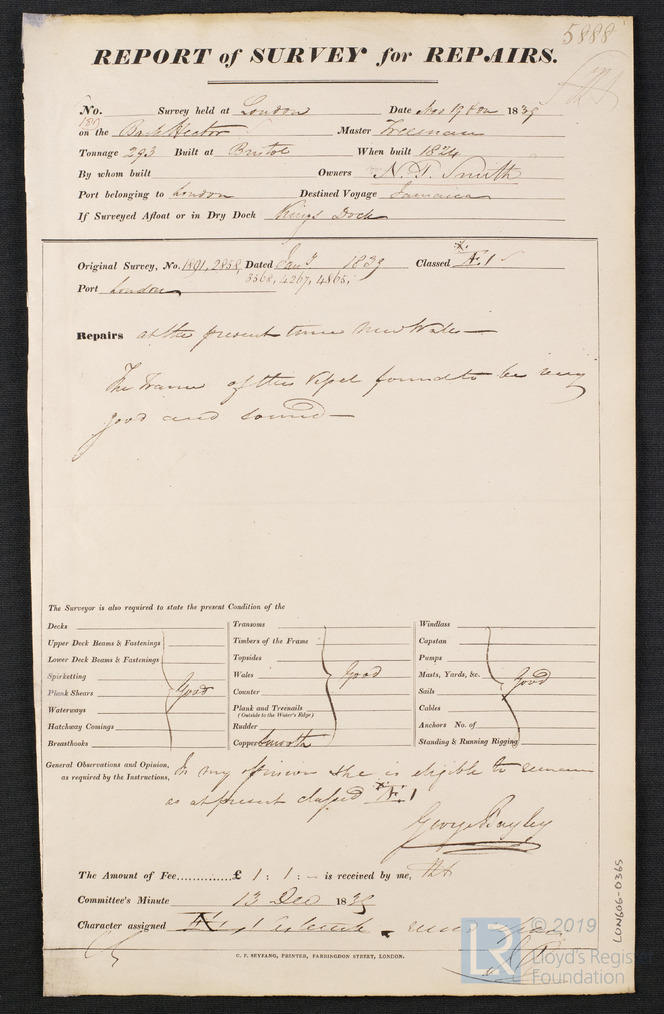 5888
REPORT of SURVEY for REPAIRS.
No. Survey held at London Date Nov 19 1839
on the Bark Hector Master Freeman
Tonnage 293 Built at Bristol When built 1824
By whom built Owners N. P. Smith
Port belonging to London Destined Voyage Jamaica
If Surveyed Afloat or in Dry Dock Kings Dock
Original Survey, No. 1891, 2858, Dated Jany 1839 Classed Æ 1
3568, 4267, 4865,
Port London
Repairs at the present time New Wales —
The Frame of this Vessel found to be very
good and sound —
The Surveyor is also required to state the present Condition of the
Decks
Upper Deck Beams & Fastenings
Lower Deck Beams & Fastenings
Spirketting
Plank Shears Good
Waterways
Hatchway Comings
Breasthooks
Transoms
Timbers of the Frame
Topsides
Wales Good
Counter
Plank and Treenails
(Outside to the Water's Edge)
Rudder
Copper Smooth
Windlass
Capstan
Pumps
Masts, Yards, &c. Good
Sails
Cables
Anchors No. of
Standing & Running Rigging
General Observations and Opinion, In my opinion she is eligible to remain
as required by the Instructions, as at present classed Æ 1
George Bayley
The Amount of Fee............£ 1 : 1 : – is received by me,
Committee's Minute 13 Dec 1839
Character assigned Æ 1
C. F. SEYFANG, PRINTER, FARRINGDON STREET, LONDON.
LON606-0365
© 2019
LR
Lloyd's Register
Foundation